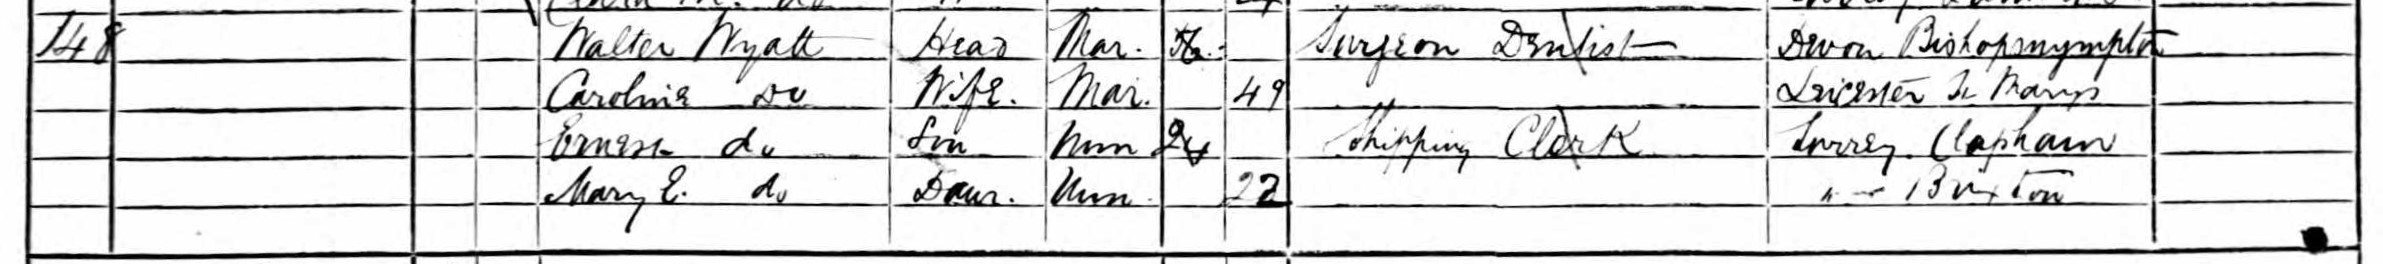 148 Walter Wyatt Head Mar. 56 Surgeon Dentist Devon Bishopsnympton
Caroline Do Wife. Mar. 49 Leicester St Marys
Ernest do Son Unm 24 Shipping Clerk Surrey Clapham
Mary E. do Daur. Unm. 22 " Brixton